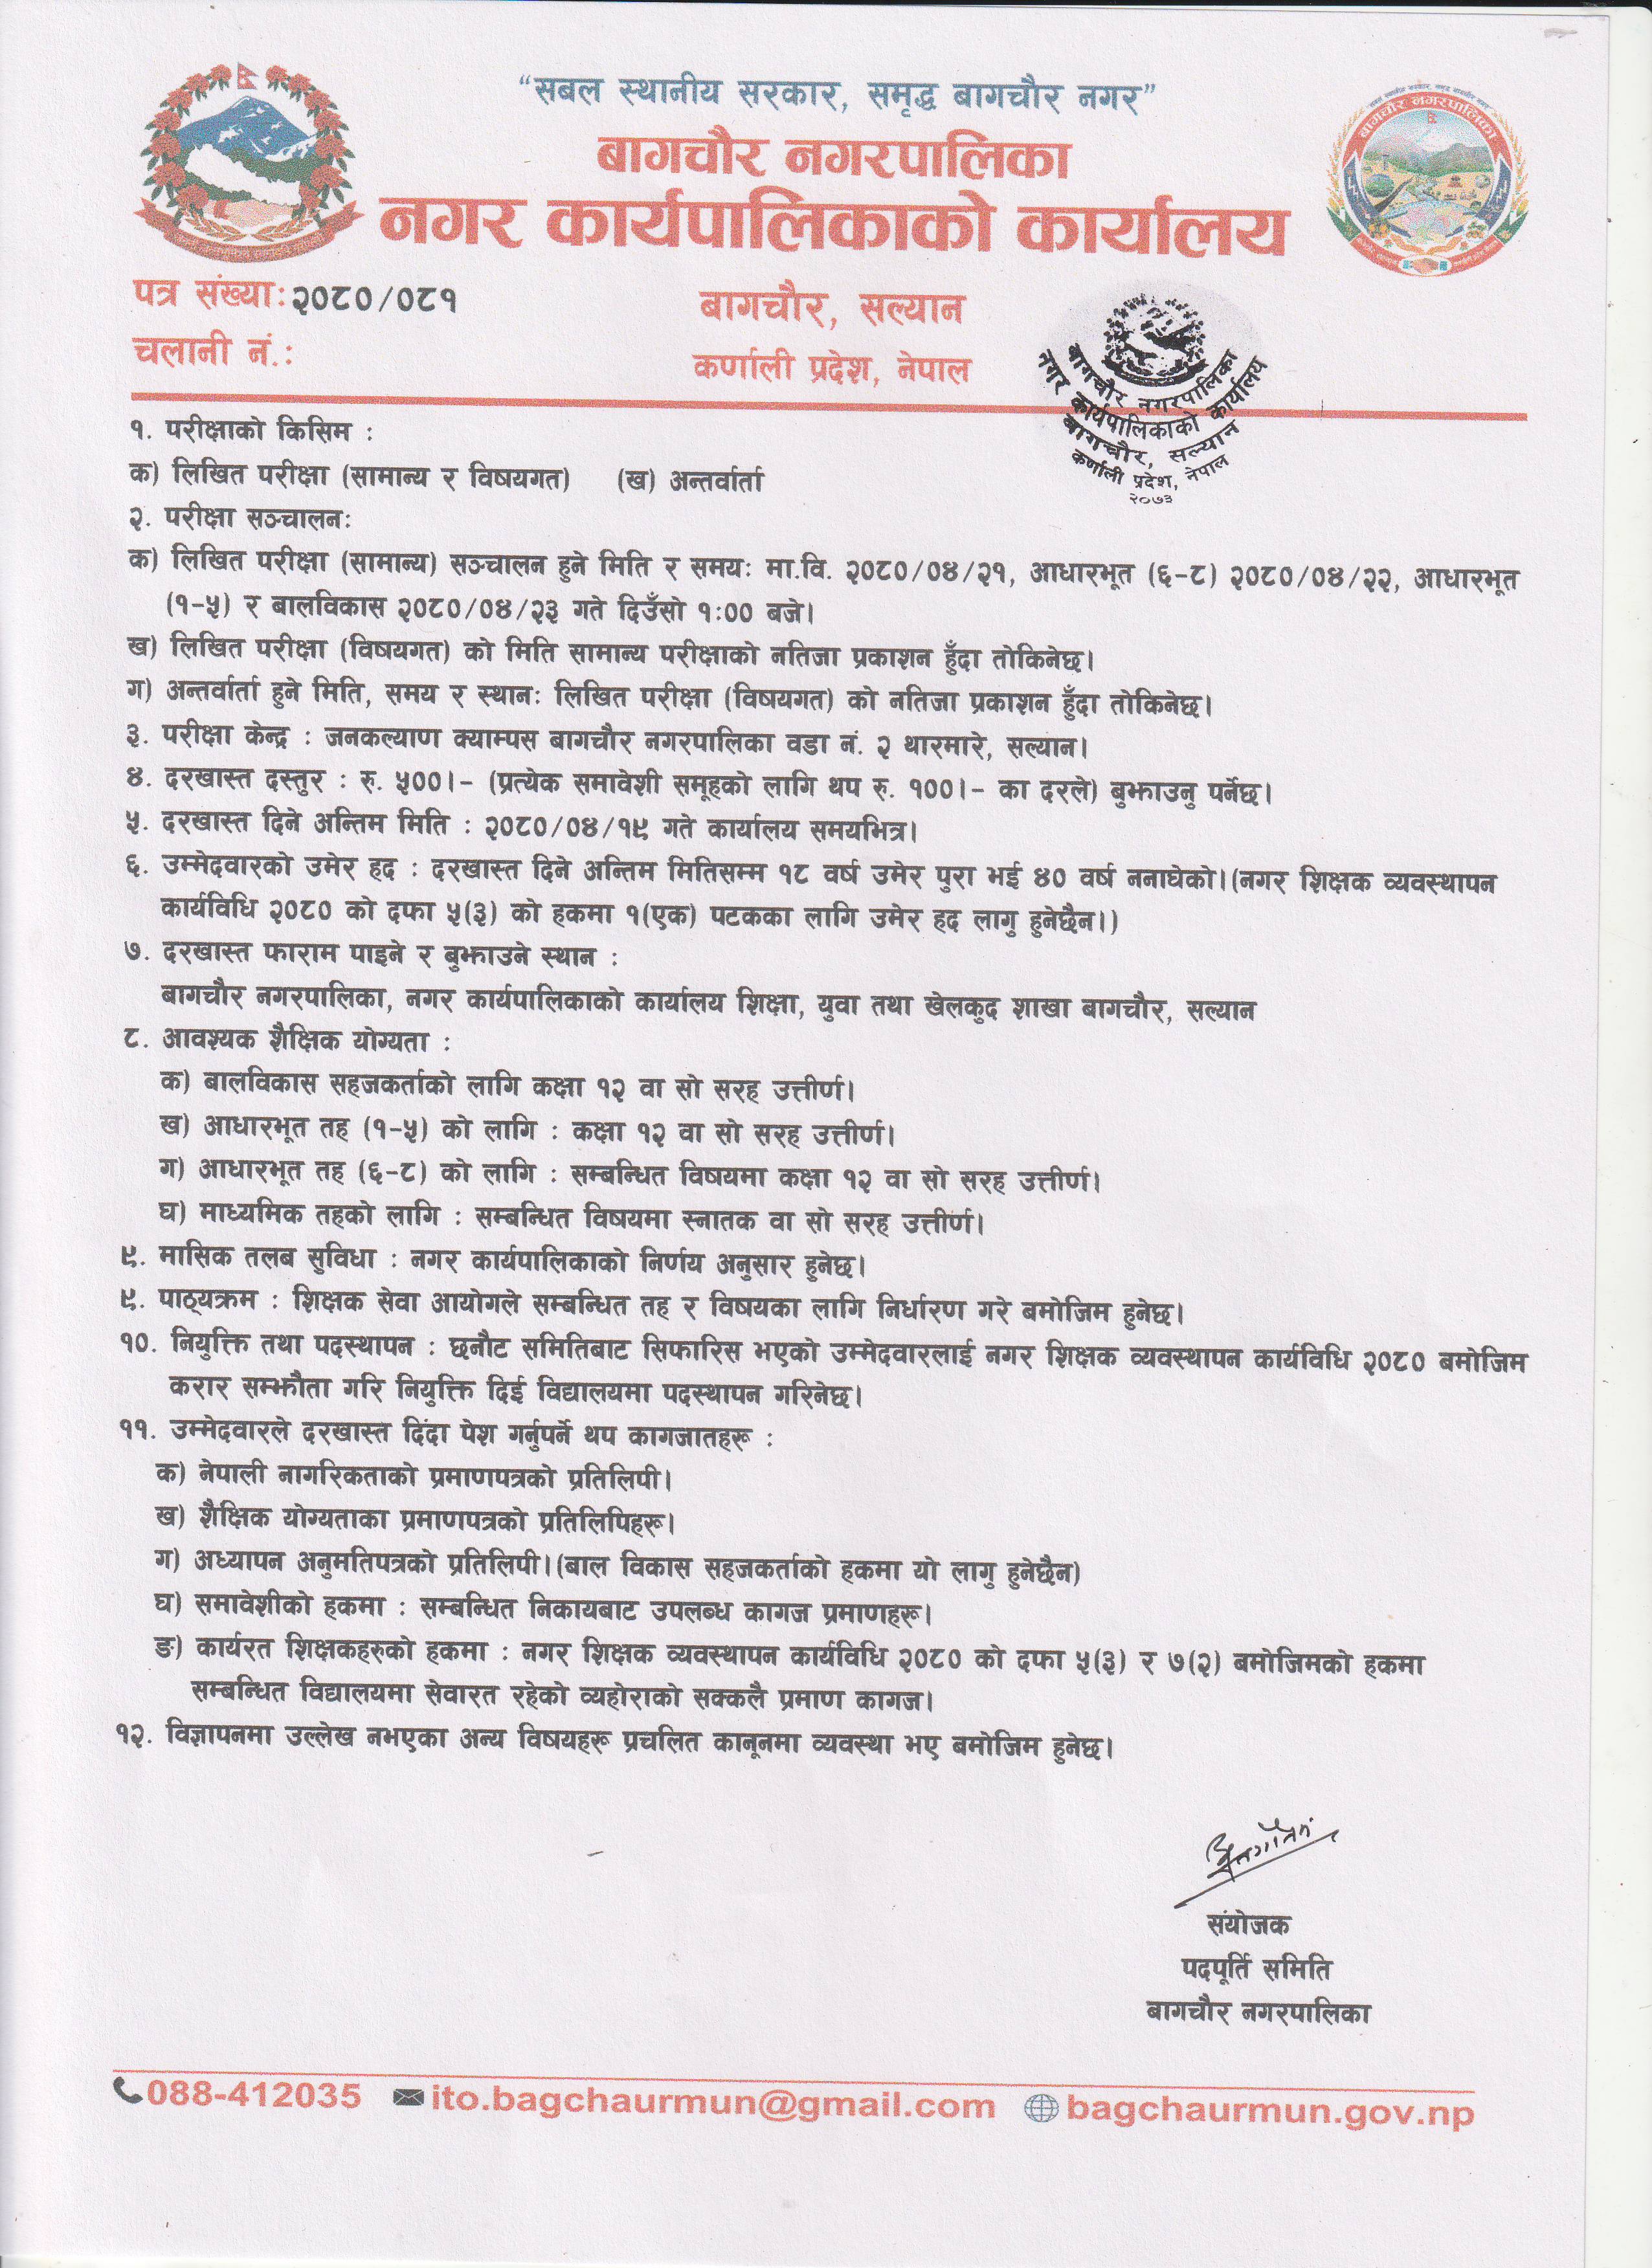 “सबल स्थानीय सरकार, समृद्ध बागचौर नगर”
बागचौर नगरपालिका
नगर कार्यपालिकाको कार्यालय
बागचौर नगरपालिका
पत्र संख्याः२०८०/०८१
बागचौर, सल्यान
चलानी नं.ः
कर्णाली प्रदेश, नेपाल
बागचौर नगरपालिका
नगर कार्यपालिकाको कार्यालय
बागचौर, सल्यान
कर्णाली प्रदेश, नेपाल
२०७३
१. परीक्षाको किसिम :
क) लिखित परीक्षा (सामान्य र विषयगत) (ख) अन्तर्वार्ता
२. परीक्षा सञ्चालनः
क) लिखित परीक्षा (सामान्य) सञ्चालन हुने मिति र समयः मा.वि. २०८०/०४/२१, आधारभूत (६-८) २०८०/०४/२२, आधारभूत
(१-५) र बालविकास २०८०/०४/२३ गते दिउँसो १:०० बजे।
ख) लिखित परीक्षा (विषयगत) को मिति सामान्य परीक्षाको नतिजा प्रकाशन हुँदा तोकिनेछ।
ग) अन्तर्वार्ता हुने मिति, समय र स्थानः लिखित परीक्षा (विषयगत) को नतिजा प्रकाशन हुँदा तोकिनेछ।
३. परीक्षा केन्द्र : जनकल्याण क्याम्पस बागचौर नगरपालिका वडा नं. २ थारमारे, सल्यान।
४. दरखास्त दस्तुर : रु. ५००।- (प्रत्येक समावेशी समूहको लागि थप रु. १००।- का दरले) बुझाउनु पर्नेछ।
५. दरखास्त दिने अन्तिम मिति : २०८०/०४/१९ गते कार्यालय समयभित्र।
६. उम्मेदवारको उमेर हद : दरखास्त दिने अन्तिम मितिसम्म १८ वर्ष उमेर पुरा भई ४० वर्ष ननाघेको।(नगर शिक्षक व्यवस्थापन
कार्यविधि २०८० को दफा ५(३) को हकमा १(एक) पटकका लागि उमेर हद लागु हुनेछैन।)
७. दरखास्त फाराम पाइने र बुझाउने स्थान :
बागचौर नगरपालिका, नगर कार्यपालिकाको कार्यालय शिक्षा, युवा तथा खेलकुद शाखा बागचौर, सल्यान
८. आवश्यक शैक्षिक योग्यता :
क) बालविकास सहजकर्ताको लागि कक्षा १२ वा सो सरह उत्तीर्ण।
ख) आधारभूत तह (१-५) को लागि : कक्षा १२ वा सो सरह उत्तीर्ण।
ग) आधारभूत तह (६-८) को लागि : सम्बन्धित विषयमा कक्षा १२ वा सो सरह उत्तीर्ण।
घ) माध्यमिक तहको लागि : सम्बन्धित विषयमा स्नातक वा सो सरह उत्तीर्ण।
९. मासिक तलब सुविधा : नगर कार्यपालिकाको निर्णय अनुसार हुनेछ।
९. पाठ्यक्रम : शिक्षक सेवा आयोगले सम्बन्धित तह र विषयका लागि निर्धारण गरे बमोजिम हुनेछ।
१०. नियुक्ति तथा पदस्थापन : छनौट समितिबाट सिफारिस भएको उम्मेदवारलाई नगर शिक्षक व्यवस्थापन कार्यविधि २०८० बमोजिम
करार सम्झौता गरि नियुक्ति दिई विद्यालयमा पदस्थापन गरिनेछ।
११. उम्मेदवारले दरखास्त दिंदा पेश गर्नुपर्ने थप कागजातहरू :
क) नेपाली नागरिकताको प्रमाणपत्रको प्रतिलिपी।
ख) शैक्षिक योग्यताका प्रमाणपत्रको प्रतिलिपिहरू।
ग) अध्यापन अनुमतिपत्रको प्रतिलिपी।(बाल विकास सहजकर्ताको हकमा यो लागु हुनेछैन)
घ) समावेशीको हकमा : सम्बन्धित निकायबाट उपलब्ध कागज प्रमाणहरू।
ङ) कार्यरत शिक्षकहरुको हकमा : नगर शिक्षक व्यवस्थापन कार्यविधि २०८० को दफा ५(३) र ७(२) बमोजिमको हकमा
सम्बन्धित विद्यालयमा सेवारत रहेको व्यहोराको सक्कलै प्रमाण कागज।
१२. विज्ञापनमा उल्लेख नभएका अन्य विषयहरू प्रचलित कानूनमा व्यवस्था भए बमोजिम हुनेछ।
संयोजक
पदपूर्ति समिति
बागचौर नगरपालिका
088-412035 ito.bagchaurmun@gmail.com bagchaurmun.gov.np